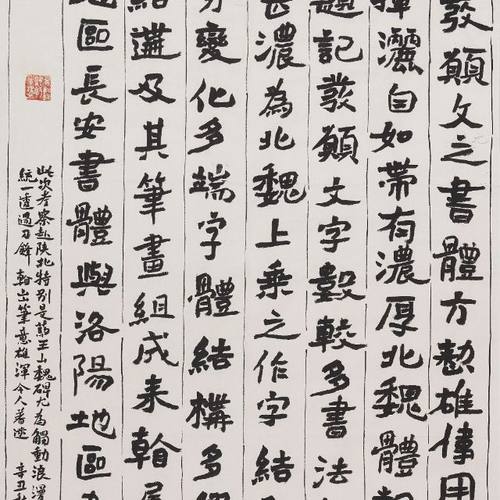 發願文之書體方勁雄偉用
揮灑自如帶有濃厚北魏體
題記發願文字數較多書法
長濃為北魏上乘之作字結
分變化多端字體結構多
結遘及其筆畫組成来翰
地區長安書體與洛陽地區
此次考察赴陝北特別是葯王山魏碑尤為觸動浪漫
統一透過刀鋒翰出筆意雄渾令人着迷 辛丑秋